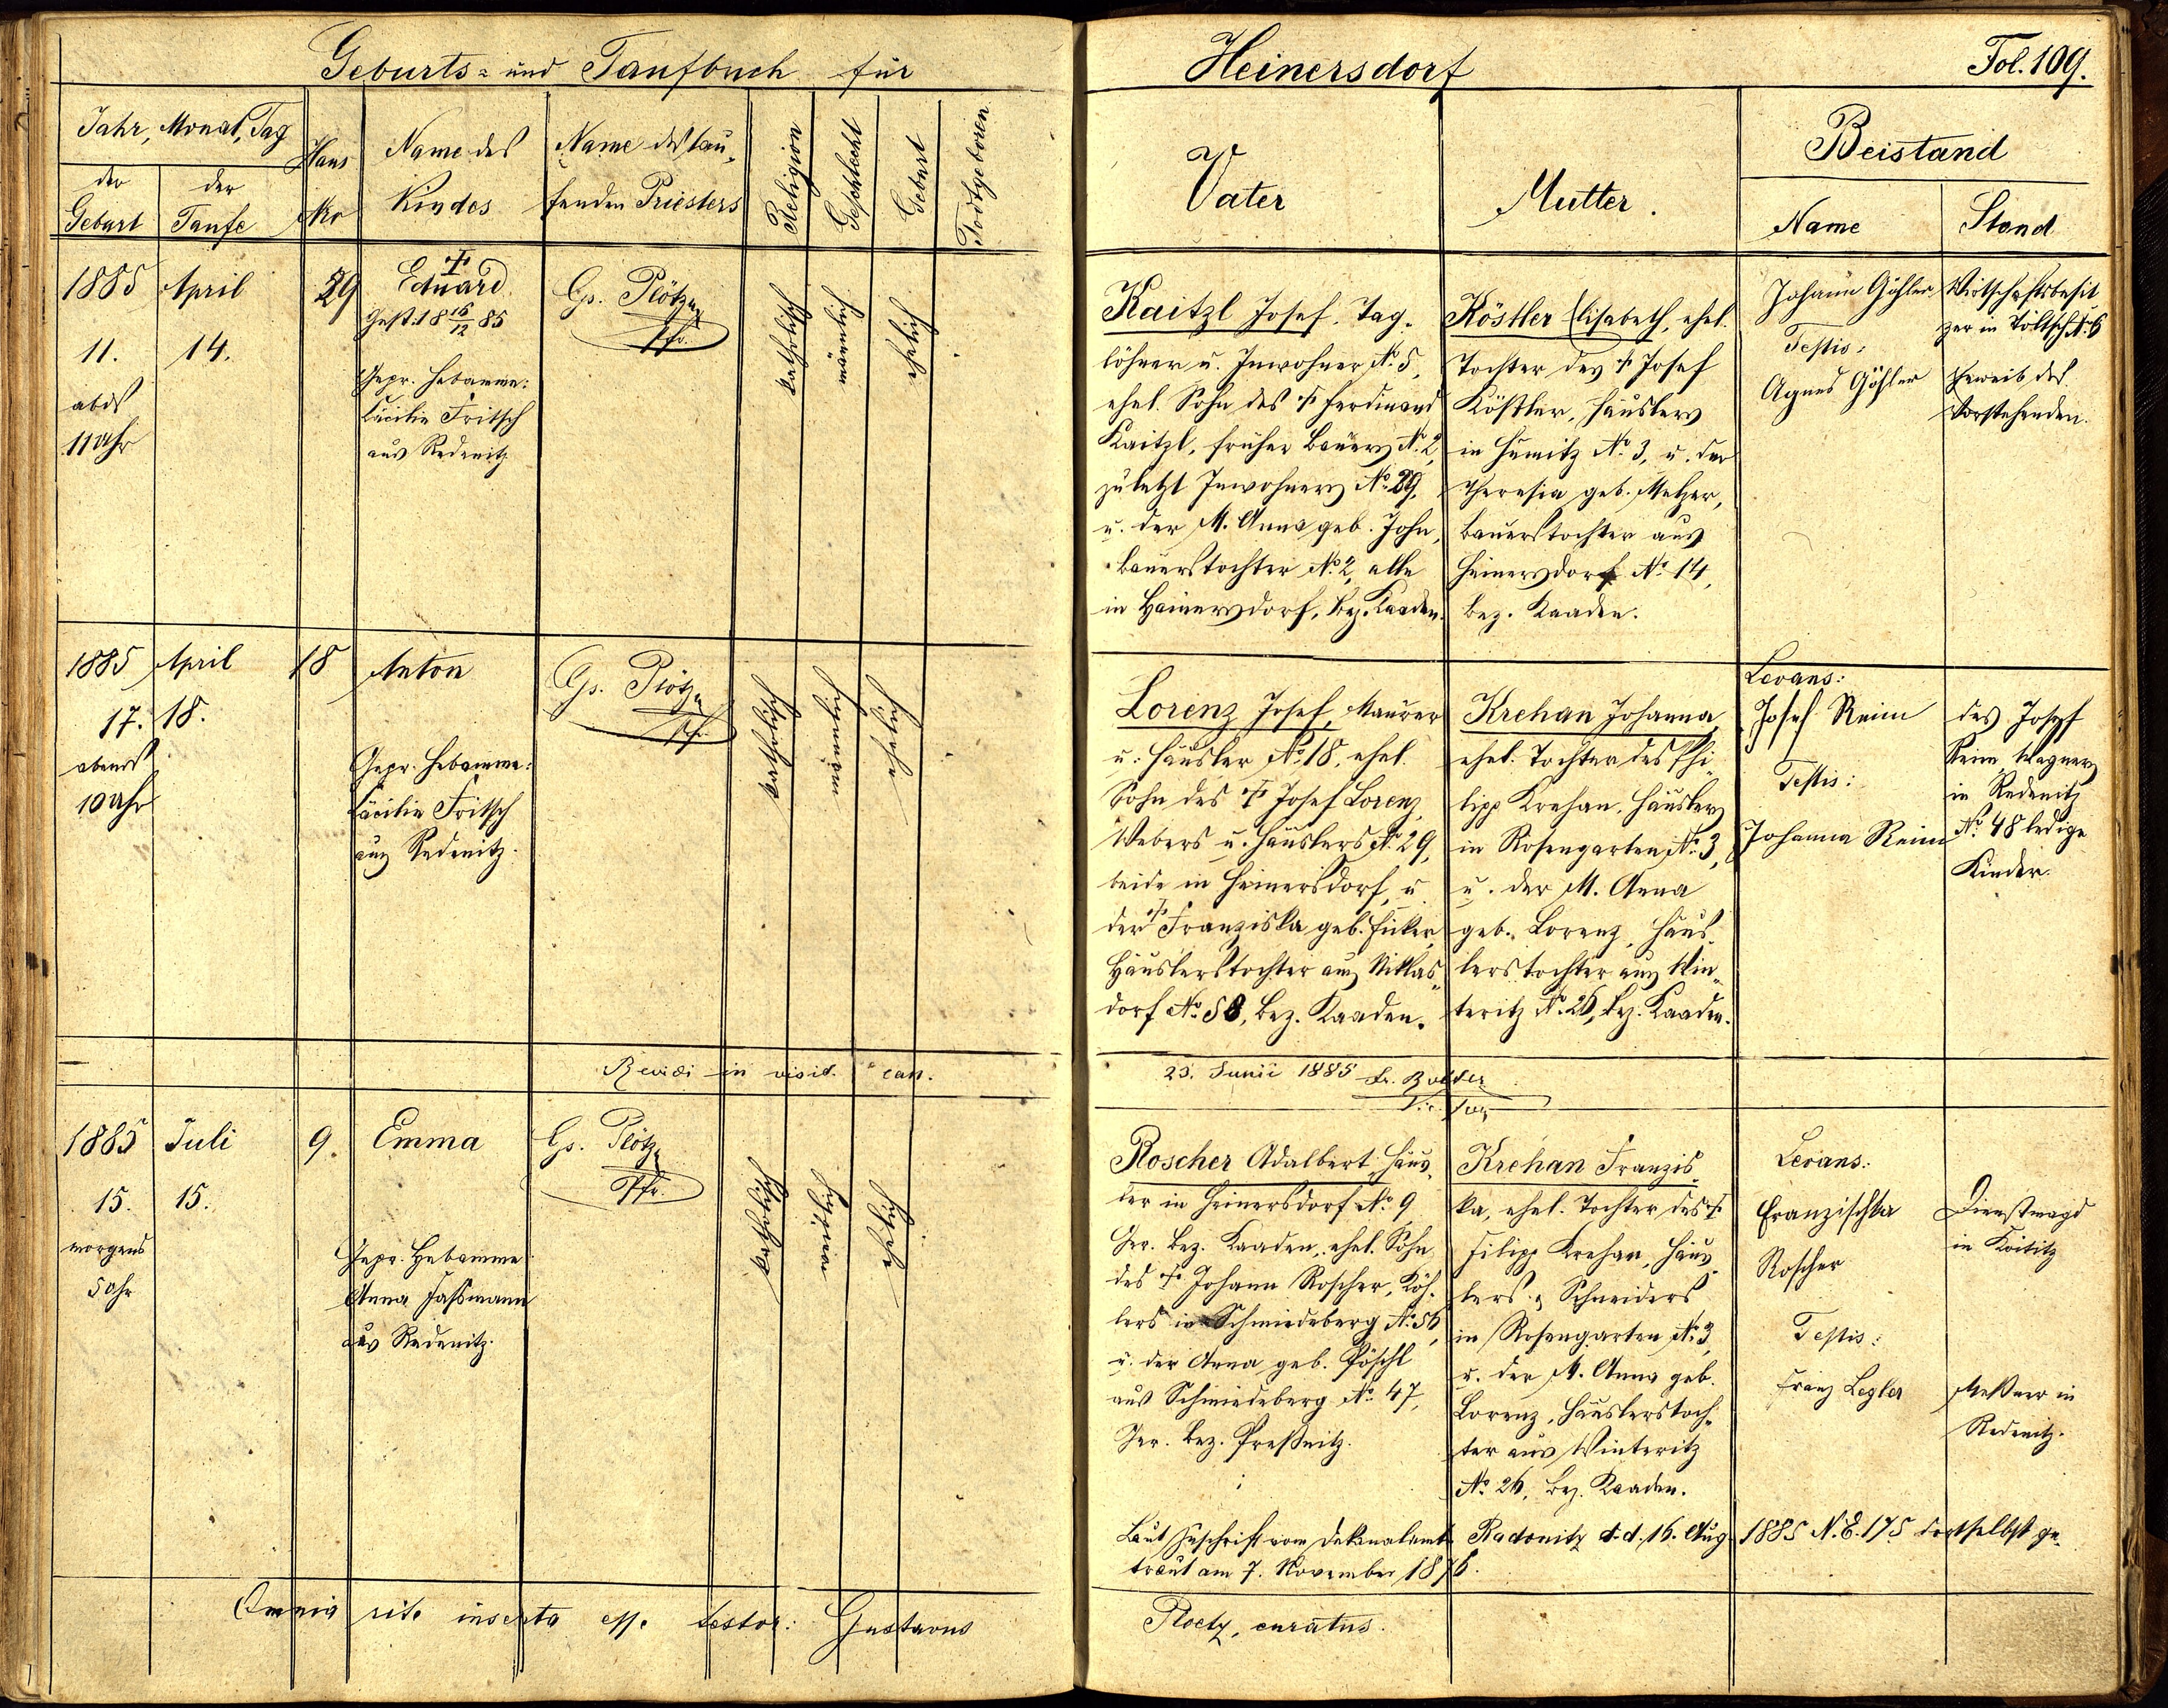 Geburts- und Taufbuch für
Heinersdorf
Fol. 109.
Jahr, Monat, Tag
der Geburt
der Taufe
Haus No
Name des Kindes
Name des tau-
fenden Priesters
Religion
Geschlecht
Geburt
Todtgeboren
Vater
Mutter.
Beistand
Name
Stand
1885
11.
abds
11 Uhr
April
14.
29
†
Eduard
Gest. 18 16/12 85
Gepr. Hebamme:
Cäcilia Fritsch
aus Redenitz
Gs. Plötz
Pfr.
katholisch
männlich
ehelich
Kaitzl Josef, Tag-
löhner u. Inwohner No. 5,
ehel. Sohn des † Ferdinand
Kaitzl, früher Bauers No. 2,
zuletzt Inwohners No. 29,
u. der M. Anna geb. John,
Bauerstochter No. 2, alle
in Heinersdorf, Bez. Kaaden.
Köstler Elisabeth, ehel.
Tochter des † Josef
Köstler, Häuslers
in Humitz No. 3, u. der
Theresia geb. Melzer,
Bauerstochter aus
Heinersdorf No. 14,
Bez. Kaaden.
Johann Göhler
Testis:
Agnes Göhler
Wirtschaftsbesit
zer in Töltsch No. 6
Eheweib des
Vorstehenden.
1885
17.
abends
10 Uhr
April
18.
18
Anton
Gepr. Hebamme:
Cäcilia Fritsch
aus Redenitz.
Gs. Plötz
Pfr.
katholisch
männlich
ehelich
Lorenz Josef, Maurer
u. Häusler No. 18, ehel.
Sohn des † Josef Lorenz,
Webers u. Häuslers No. 29,
beide in Heinersdorf, u.
der † Franziska geb. Ficker,
Häuslerstochter aus Niklas-
dorf No. 58, Bez. Kaaden.
Krehan Johanna
ehel. Tochter des Phi-
lipp Krehan, Häuslers
in Rosengarten No. 3,
u. der M. Anna
geb. Lorenz, Häus-
lerstochter aus Win-
teritz No. 26, Bez. Kaaden.
Levans:
Josef Reim
Testis:
Johanna Reim
des Josef
Reim, Wagners
in Redenitz
No. 48 ledige
Kinder.
Revidi in visit. can.
23. Junii 1885
1885
15.
morgens
5 Uhr
Juli
15.
9.
Emma
Gepr. Hebamme
Anna Fassmann
aus Redenitz.
Gs. Plötz
Pfr.
katholisch
weiblich
ehelich
Roscher Adalbert, Häus-
ler in Heinersdorf No. 9
Ger. Bez. Kaaden, ehel. Sohn
des † Johann Roscher, Köh-
lers in Schmiedeberg No. 56,
u. der Anna geb. Pöschl
aus Schmiedeberg No. 47,
Ger. Bez. Preßnitz.
Krehan Franzis-
ka, ehel. Tochter des †
Filipp Krehan, Häus-
lers & Schneiders
in Rosengarten No. 3,
u. der M. Anna geb.
Lorenz, Häuslerstoch-
ter aus Winteritz
No. 26, Bez. Kaaden.
Levans:
Franzischka
Roscher
Testis:
Franz Legler
Dienstmagd
in Köstitz
Meßner in
Redenitz.
Laut Zuschrift vom Dekanalamte Radonitz d. d. 16. Aug. 1885 N. E. 175 dortselbst ge-
traut am 7. November 1876.
Omnia rite inserta esse testor: Gustavus
Ploetz, curatus.